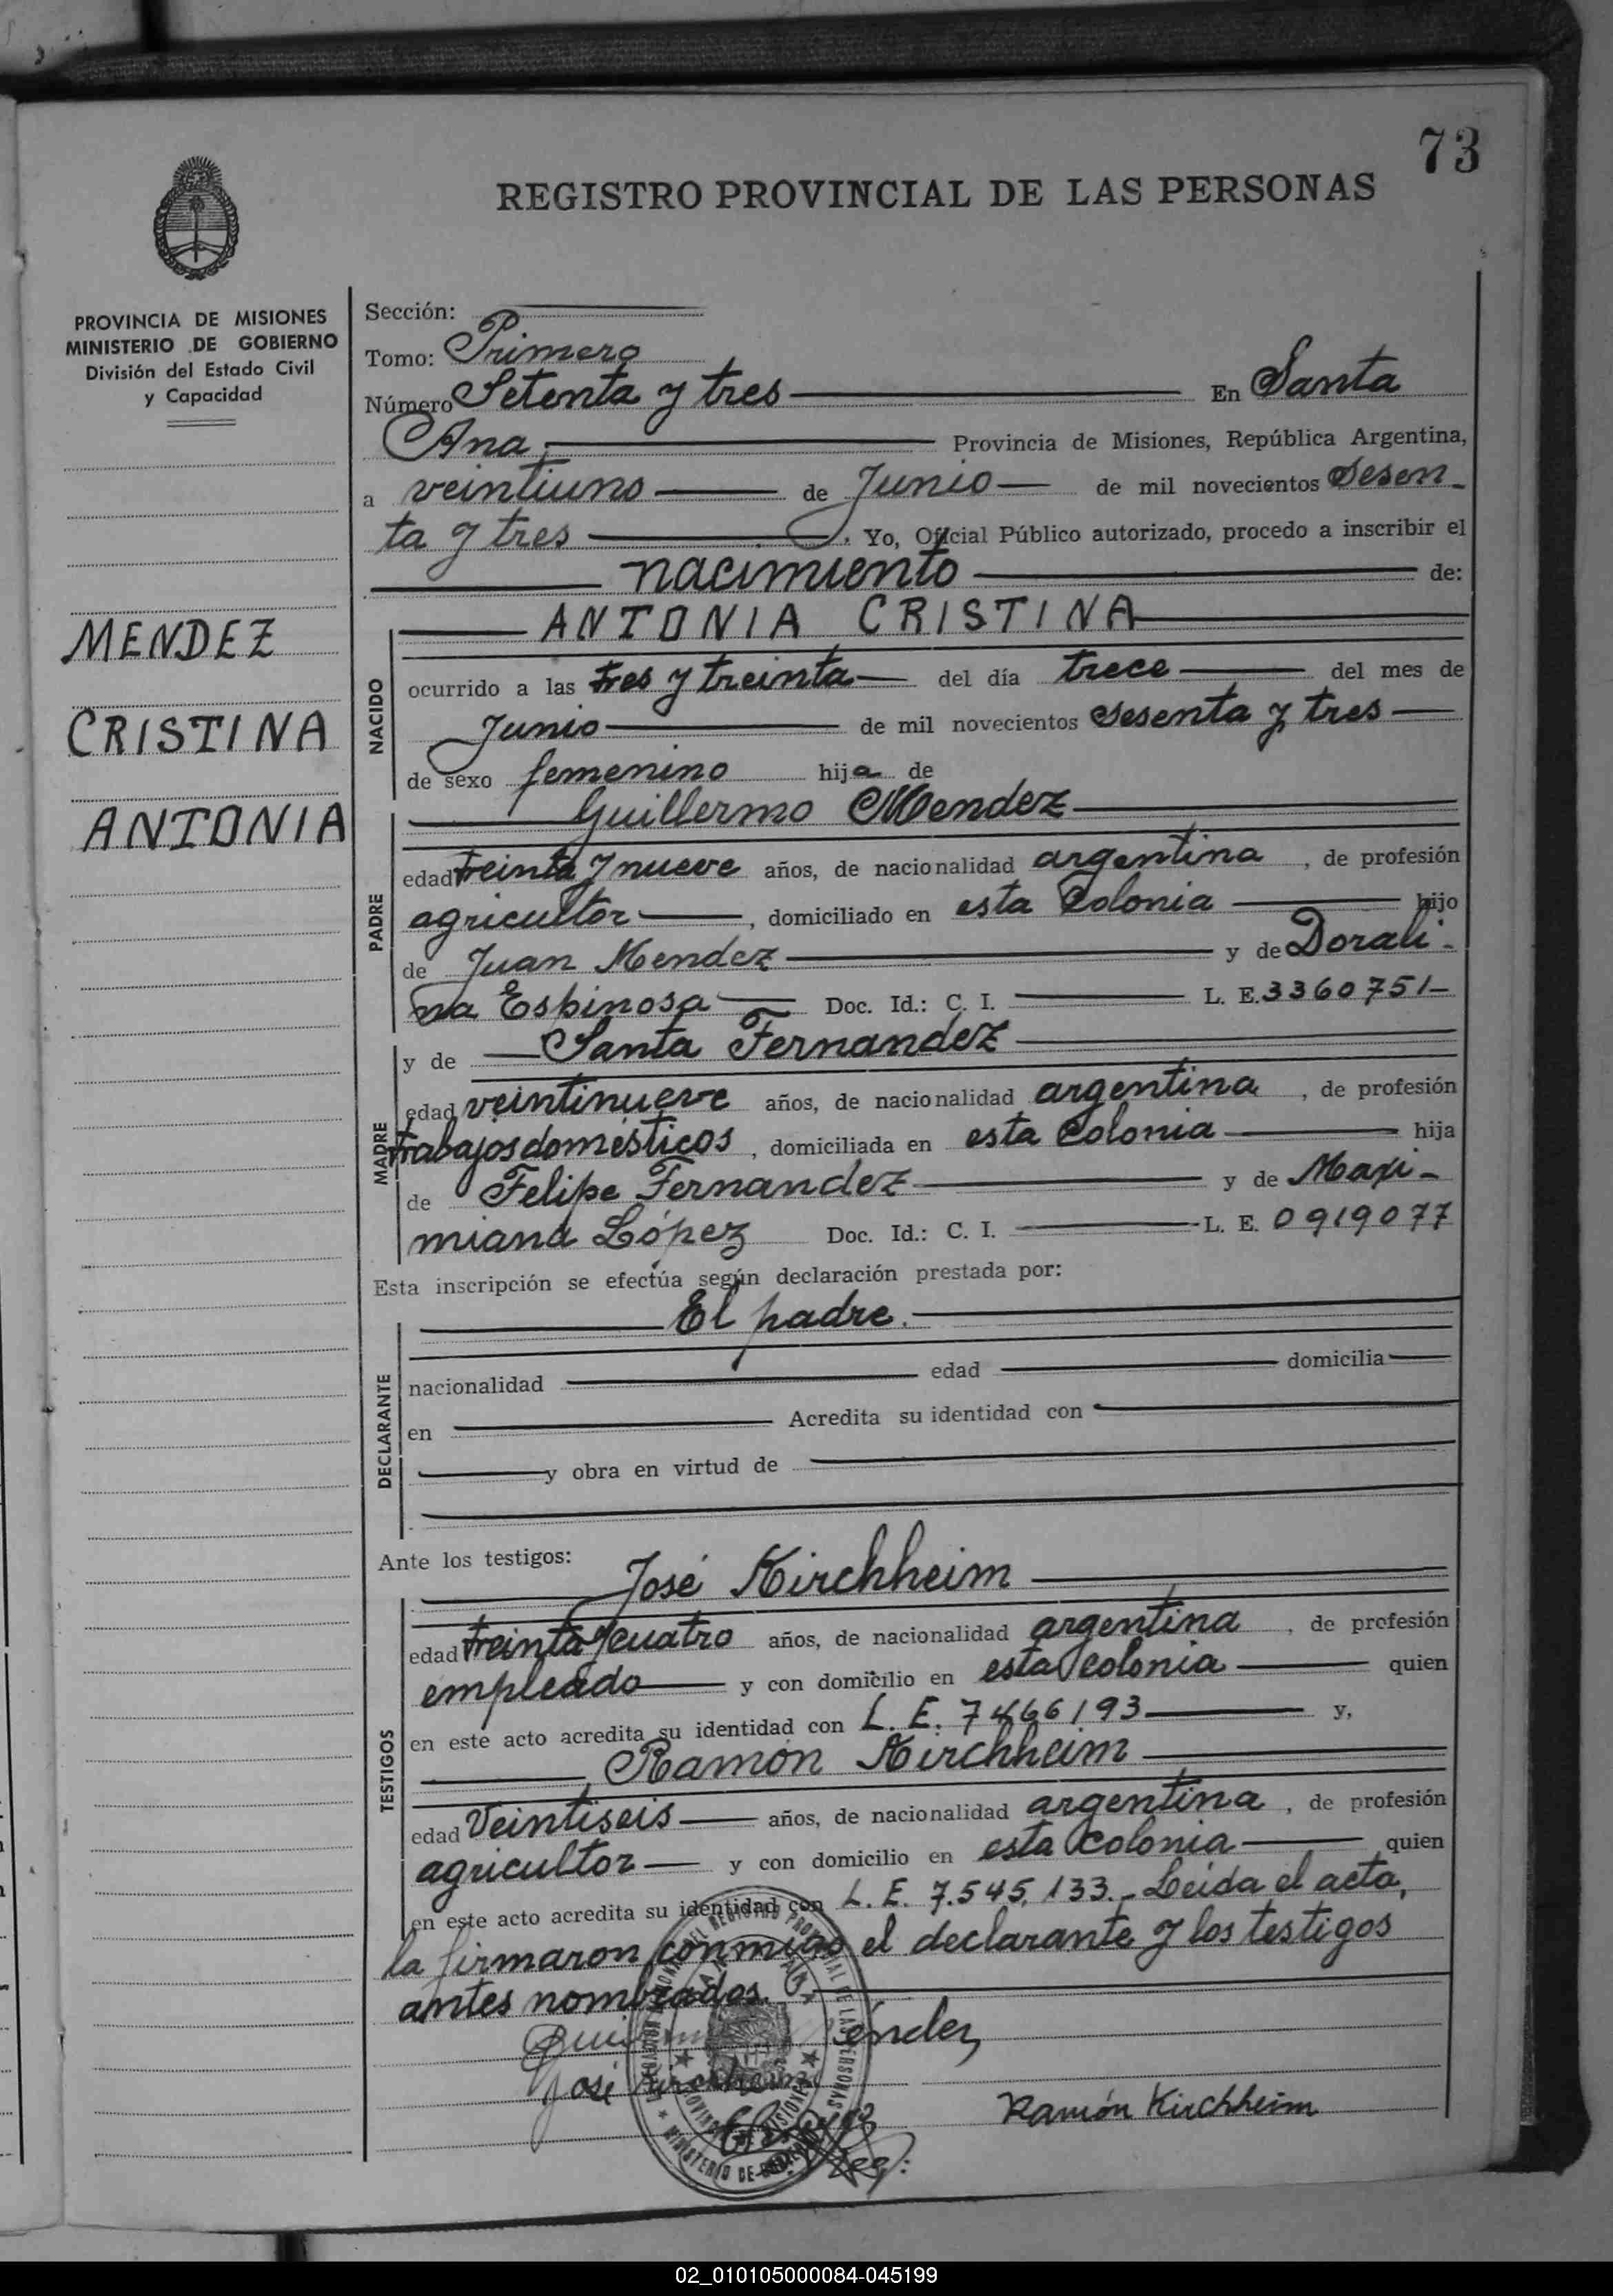 73
REGISTRO PROVINCIAL DE LAS PERSONAS
PROVINCIA DE MISIONES
MINISTERIO DE GOBIERNO
División del Estado Civil
y Capacidad
MENDEZ
CRISTINA
ANTONIA
Sección:
Tomo: Primero
Número Setenta y tres En Santa
Ana, Provincia de Misiones, República Argentina,
a veintiuno de Junio de mil novecientos Sesen-
ta y tres . Yo, Oficial Público autorizado, procedo a inscribir el
nacimiento de:
ANTONIA CRISTINA
NACIDO
ocurrido a las tres y treinta del día trece del mes de
Junio de mil novecientos sesenta y tres
de sexo femenino hija de
Guillermo Mendez
PADRE
edad treinta y nueve años, de nacionalidad argentina, de profesión
agricultor, domiciliado en esta Colonia hijo
de Juan Mendez y de Dorali-
na Espinosa Doc. Id.: C. I. L. E. 3360751-
y de Santa Fernandez
MADRE
edad veintinueve años, de nacionalidad argentina, de profesión
trabajos domésticos, domiciliada en esta Colonia hija
de Felipe Fernandez y de Maxi-
miana López Doc. Id.: C. I. L. E. 0919077
Esta inscripción se efectúa según declaración prestada por:
El padre.
DECLARANTE
nacionalidad edad domicilia
en Acredita su identidad con
y obra en virtud de
Ante los testigos:
José Kirchheim
TESTIGOS
edad treinta y cuatro años, de nacionalidad argentina, de profesión
empleado y con domicilio en esta Colonia quien
en este acto acredita su identidad con L. E. 7466193 y,
Ramón Kirchheim
edad Veintiseis años, de nacionalidad argentina, de profesión
agricultor y con domicilio en esta Colonia quien
en este acto acredita su identidad con L. E. 7.545.133.- Leída el acta,
la firmaron conmigo el declarante y los testigos
antes nombrados.
José Kirchheim
Ramón Kirchheim
02_010105000084-045199